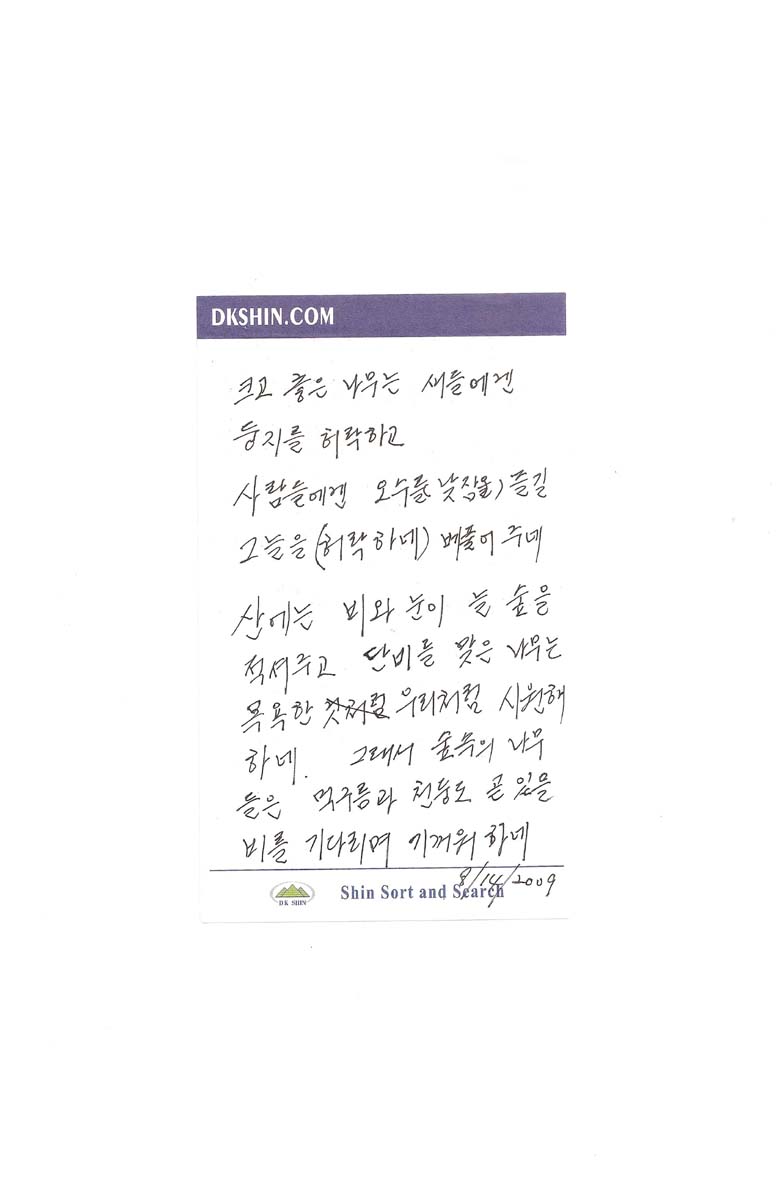 DKSHIN.COM
크고 좋은 나무는 새들에겐
둥지를 허락하고
사람들에겐 오수를(낮잠을) 즐길
그늘을 (허락하네) 베풀어 주네
산에는 비와 눈이 늘 숲을
적셔주고 단비를 맞은 나무는
목욕한 우리처럼 시원해
하네. 그래서 숲속의 나무
들은 먹구름과 천둥도 곧 있을
비를 기다리며 기꺼워 하네
8/14/2009
DK SHIN
Shin Sort and Search